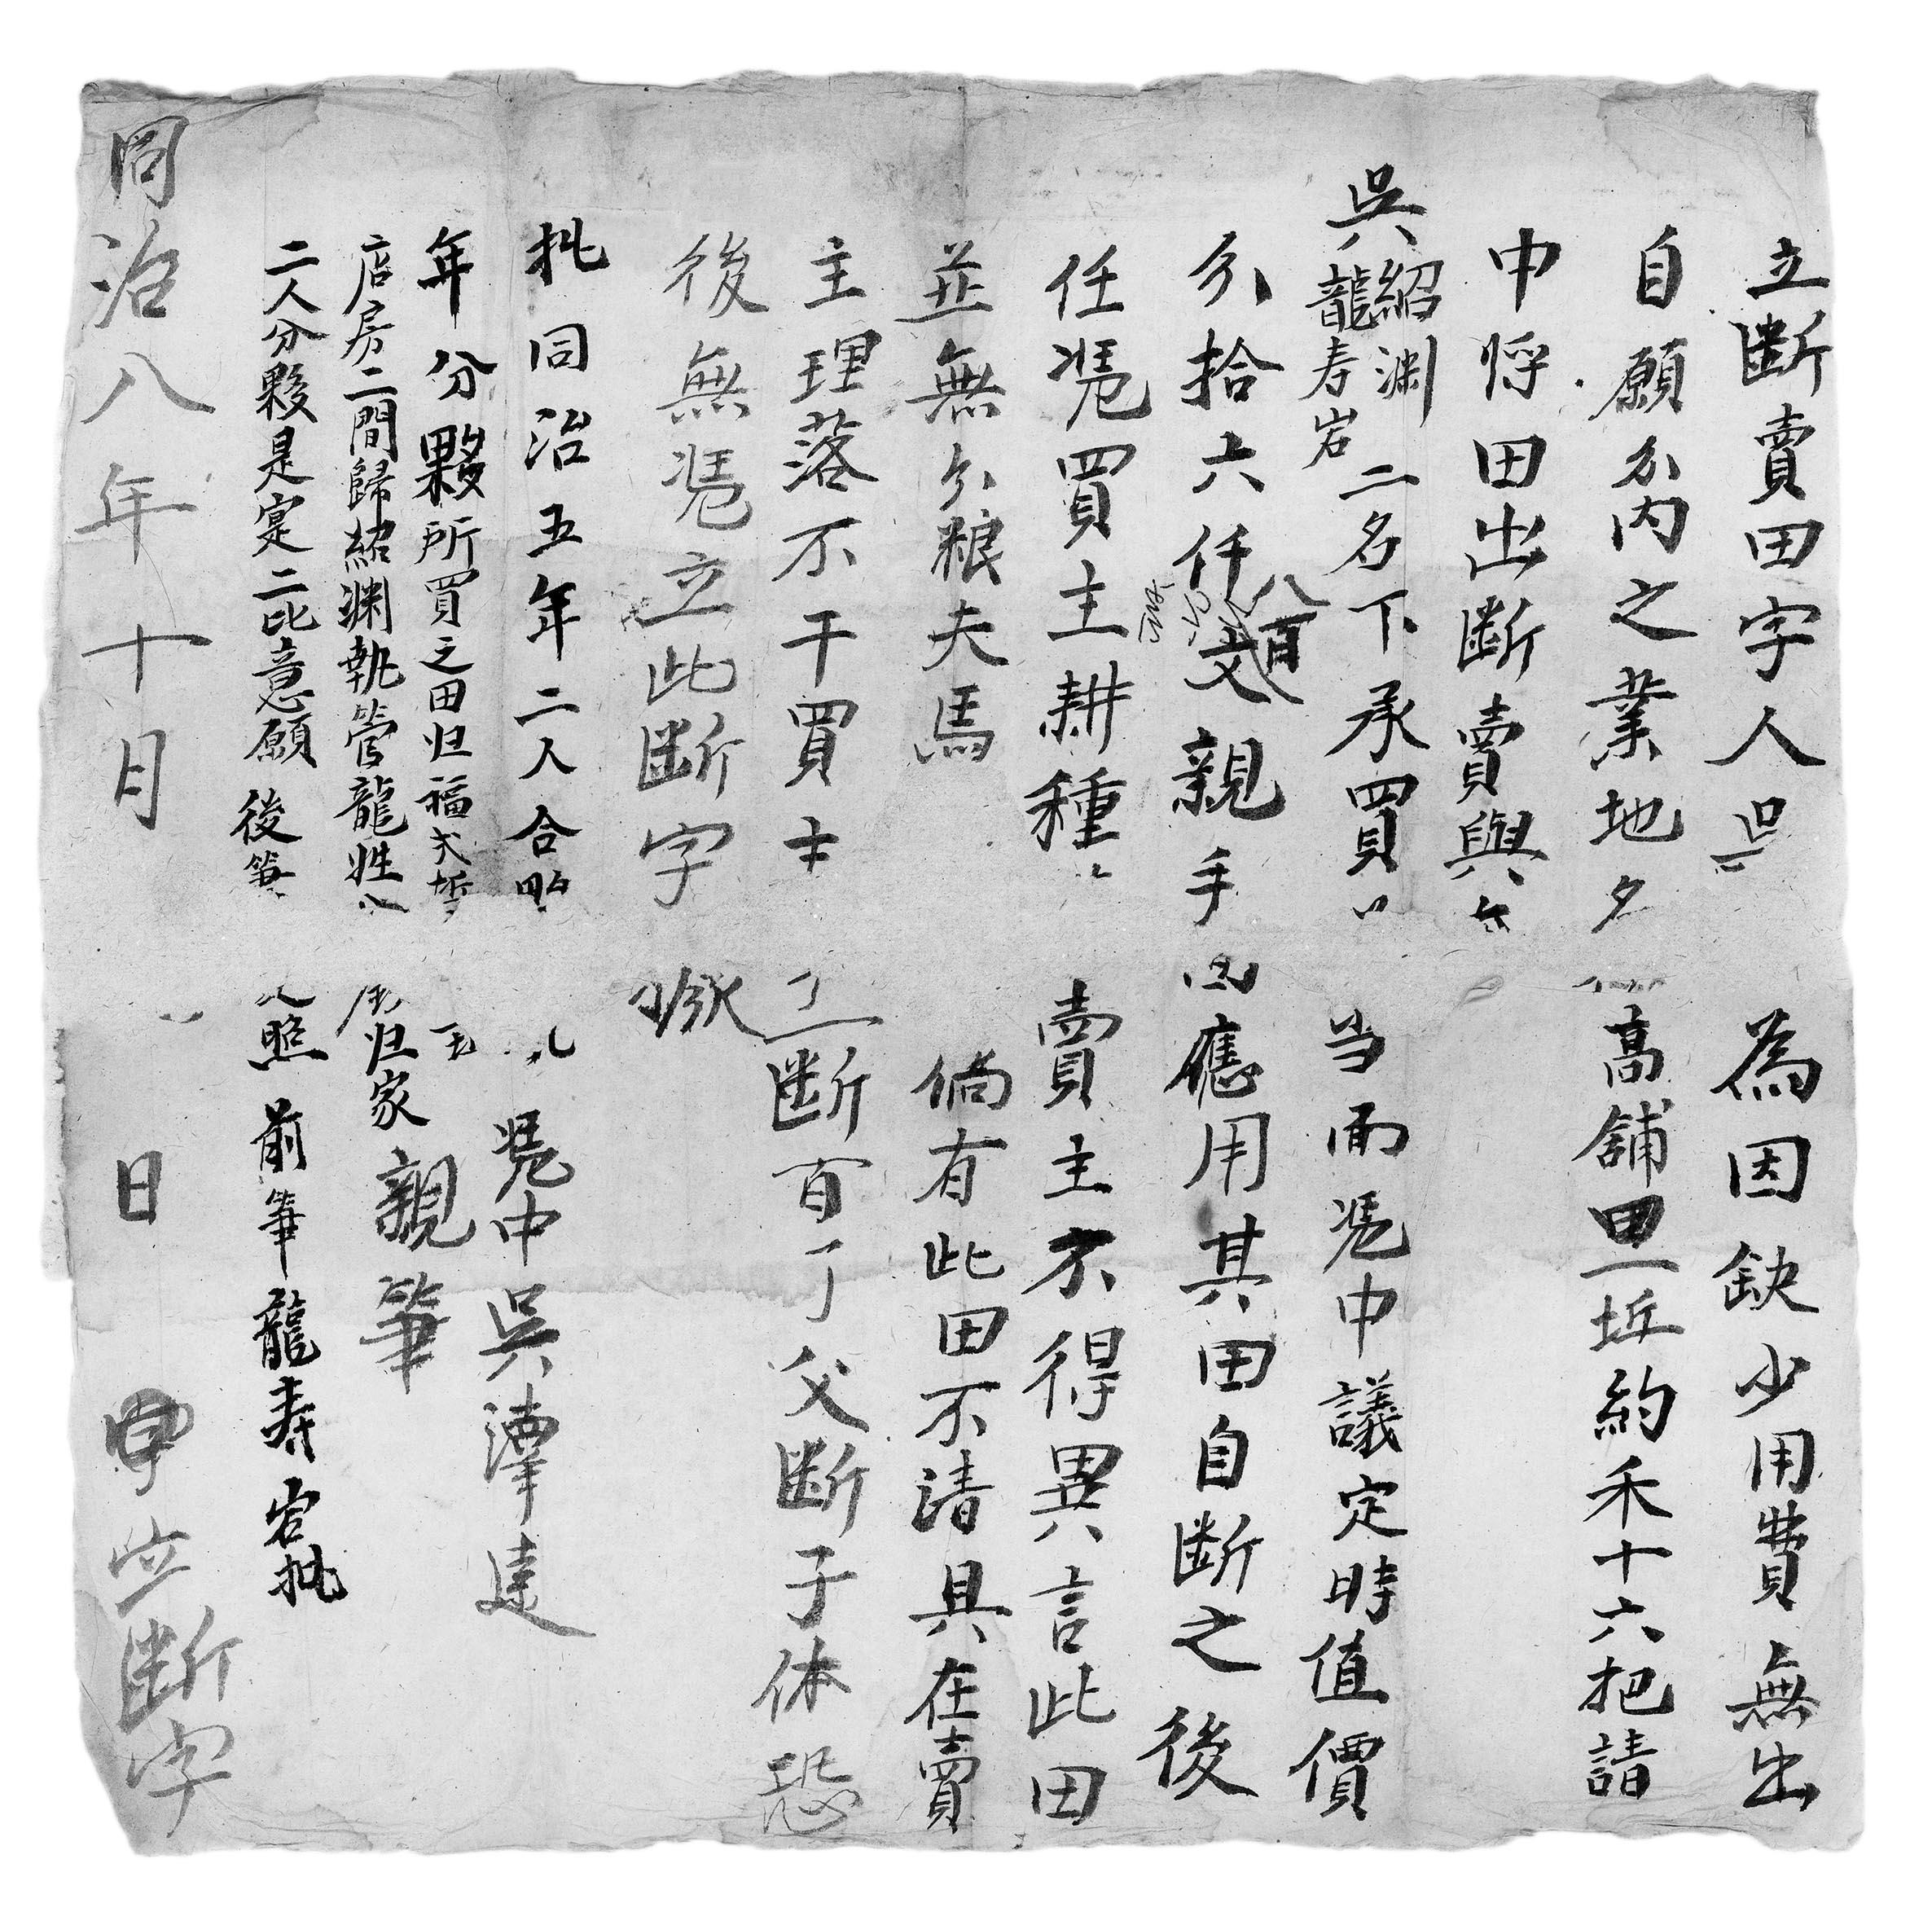 立斷賣田字人吳 為因缺少用費無出
自願分内之業地名 高舖田一坵約禾十六把請
中将田出斷賣與
吳紹渊龍寿岩二名下承買 当面凭中議定時值價
分拾六仟八百文親手 應用其田自斷之後
任凭買主耕種 賣主不得異言此田
並無分粮夫馬 倘有此田不清具在賣
主理落不干買主 一斷百了父斷子休恐
後無凭立此斷字
批同治五年二人合
年分夥所買之田归福
店房二間歸紹渊執管龍姓 归家
二人分夥是寔二比意願 後筆 照 前筆龍寿岩批
凭中吳
親筆
同治八年十月 日 立斷字